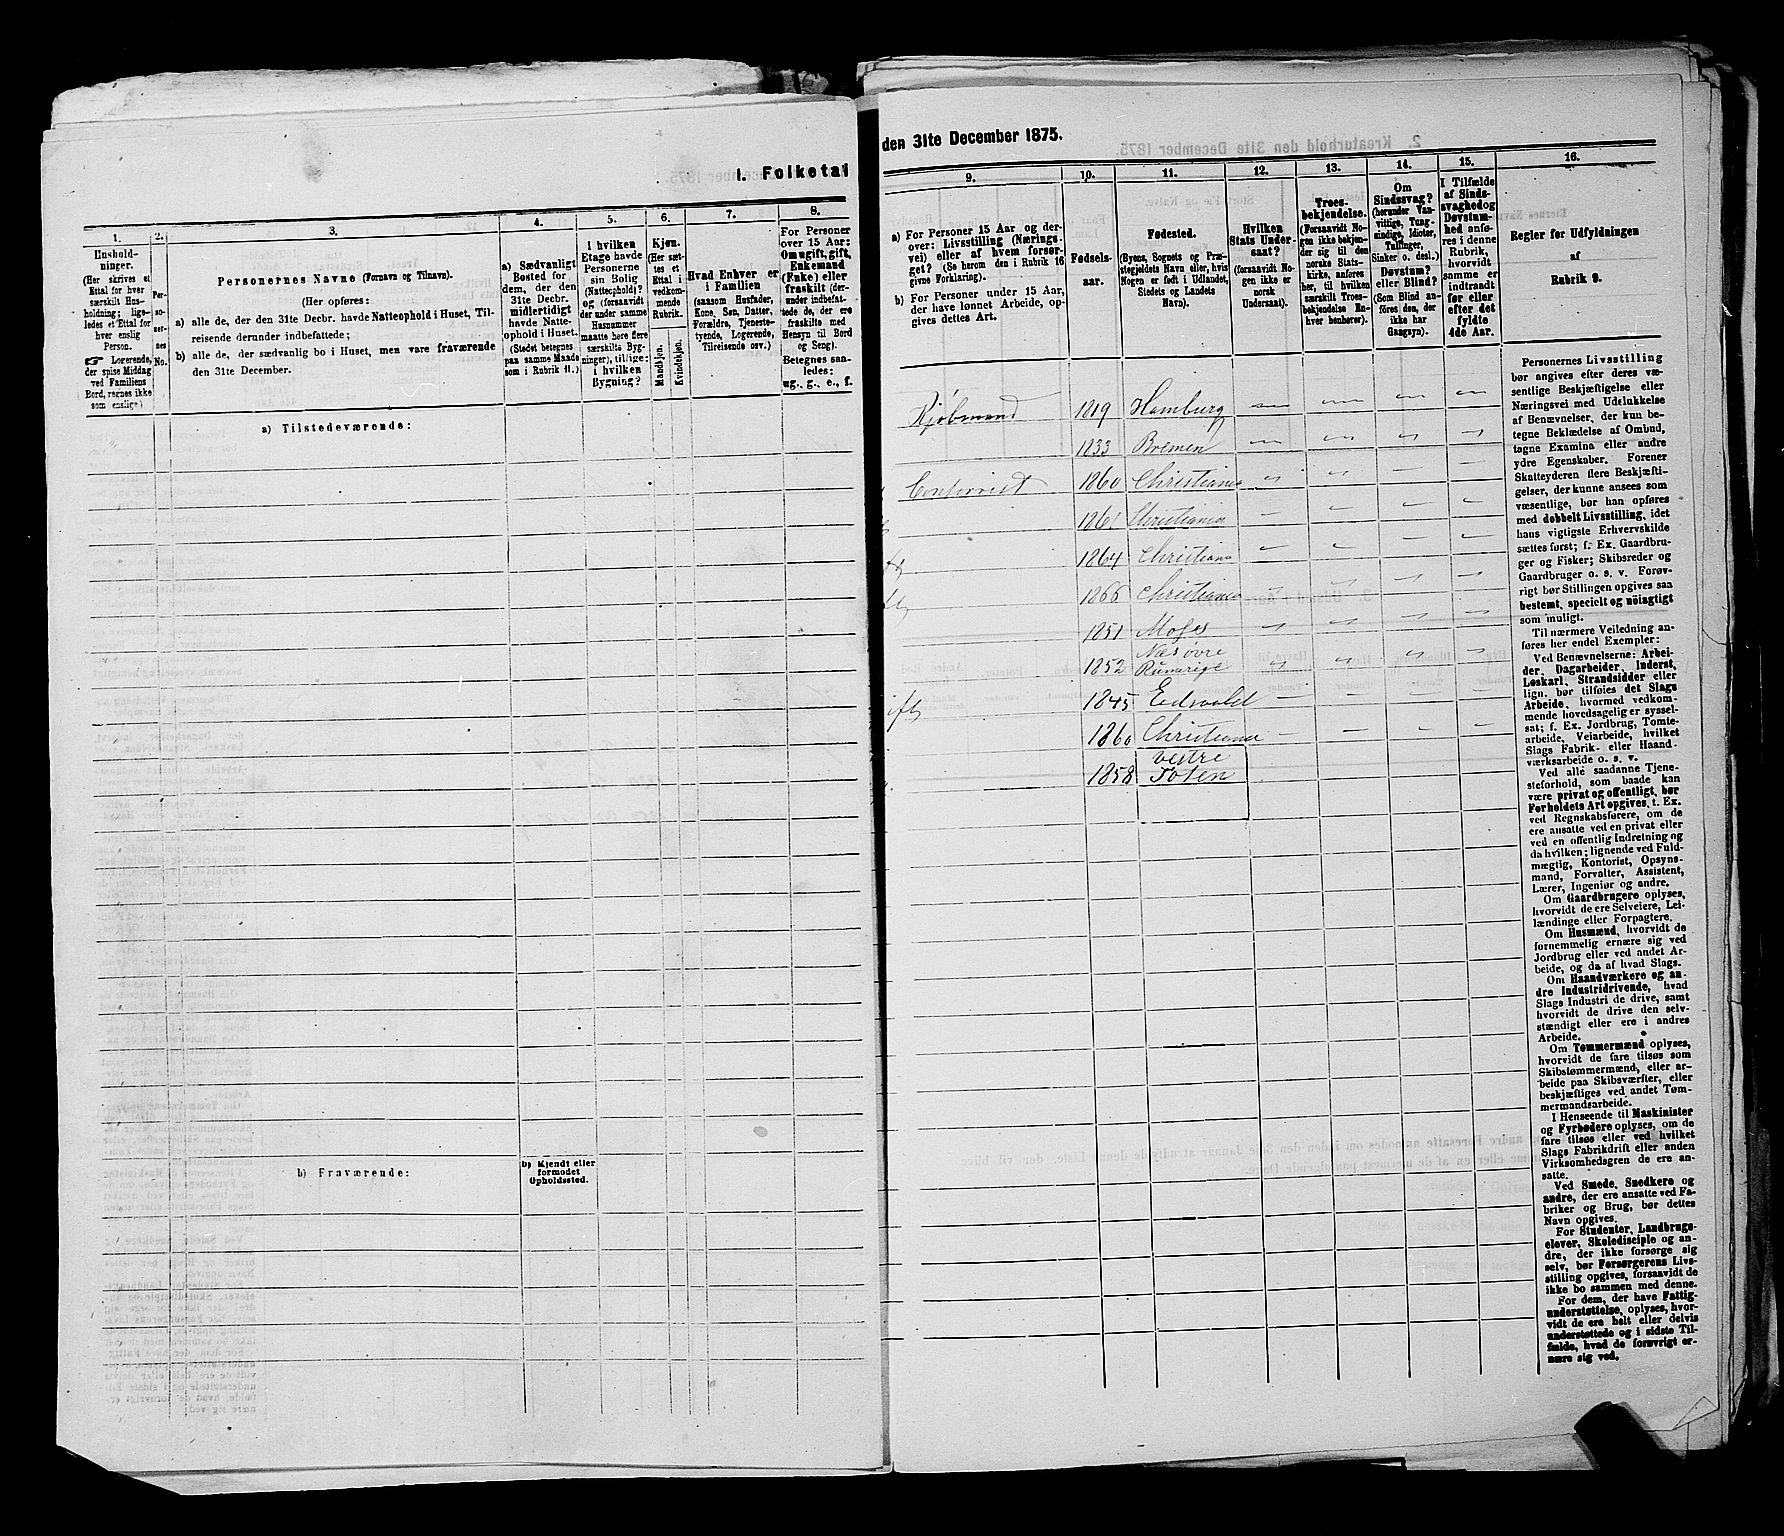 1. Folketal
1.
2.
3.
4.
5.
6.
7.
8.
Husholdninger.
(Her skrives et
Ettal for hver
særskilt Husholdning; ligeledes
et Ettal for
hver enslig
Person.
Logerende,
der spise Middag
ved Familiens
Bord, regnes ikke
som enslige)
Personernes
No.
Personernes Navne (Fornavn og Tilnavn).
(Her opføres:
a) alle de, der den 31te Decbr. havde Natteophold i Huset, Tilreisende derunder indbefattede;
b) alle de, der sædvanlig bo i Huset, men vare fraværende
den 31te December.
a) Sædvanligt
Bosted for
dem, der den
31te Decbr.
midlertidigt
havde Natteophold i Huset.
(Stedet betegnes
paa samme Maade
som i Rubrik 11.)
I hvilken
Etage havde
Personerne
sin Bolig
(Natteophold)?
og (forsaavidt
der under samme
Husnummer
maatte høre flere
særskilte Bygninger), tillige:
i hvilken
Bygning?
Kjøn.
(Her sættes et
Ettal i
vedkommende
Rubrik.
Mandkjøn.
Kvindekjøn.
Hvad Enhver er
i Familien
(saasom Husfader,
Kone, Søn, Datter,
Forældre, Tjenestetyende, Logerende,
Tilreisende osv.)
For Personer
over 15 Aar:
Om ugift, gift,
Enkemand
(Enke) eller
fraskilt (derunder indbefattede de, der ere
fraskilte med
Hensyn til Bord
og Seng).
Betegnes saaledes:
ug., g., e., f.
a) Tilstedeværende:
b) Fraværende:
b) Kjendt eller
formodet
Opholdssted.
den 31te December 1875.
9.
10.
11.
12.
13.
14.
15.
16.
a) For Personer 15 Aar og derover: Livsstilling (Næringsvei) eller af hvem forsørget? (Se herom den i Rubrik 16
givne Forklaring).
b) For Personer under 15 Aar,
der have lønnet Arbeide, opgives dettes Art.
Fødselsaar.
Fødested.
(Byens, Sognets og Præstegjeldets Navn eller, hvis
Nogen er født i Udlandet,
Stedets og Landets
Navn).
Hvilken
Stats Undersaat?
(forsaavidt Nogen ikke er
norsk
Undersaat.
Troesbekjendelse.
(Forsaavidt Nogen ikke bekjender sig til den
norske Statskirke, anføres
her, til hvilken
særskilt Troesbekjendelse Enhver henhører).
Om
Sindssvag?
(herunder Vanvittige, Tungsindige, Idioter,
Tullinger,
Sinker o. desl.)
Døvstum?
eller Blind?
(Som Blind anføres den, der
ikke har
Gangsyn).
I Tilfælde
af Sindssvaghed og
Døvstumhed anføres i denne
Rubrik,
hvorvidt
samme er
indtraadt
før eller
efter det
fyldte
4de Aar.
Regler for Udfyldningen
af
Rubrik 9.
Kjøbmand 1819 Hamburg
1833 Bremen
Contorrist 1860 Christiania
1861 Christiania
1864 Christiania
1866 Christiania
1851 Moss
Næs øvre
1852 Rumerige
1845 Eidsvold
1860 Christiania
vestre
1858 Toten
Personernes Livsstilling
bør angives efter deres væsentlige Beskjæftigelse eller
Næringsvei med Udelukkelse
af Benævnelser, der kun betegne Beklædelse af Ombud,
tagne Examina eller andre
ydre Egenskaber. Forener
Skatteyderen flere Beskjæftigelser, der kunne ansees som
væsentlige, bør han opføres
med dobbelt Livsstilling, idet
hans vigtigste Erhvervskilde
sættes først; f. Ex. Gaardbruger og Fisker; Skibsreder og
Gaardbruger o. s. v. Forøvrigt bør Stillingen opgives saa
bestemt, specielt og nøiagtigt
som muligt.
Til nærmere Veiledning anføres her endel Exempler:
Ved Benævnelserne: Arbeider, Dagarbeider, Inderst,
Løskarl, Strandsidder eller
lign. bør tilføies det Slags
Arbeide, hvormed vedkommende hovedsagelig er sysselsat; f. Ex. Jordbrug, Tomtearbeide, Veiarbeide, hvilket
Slags Fabrik- eller Haandværksarbeide o. s. v.
Ved alle saadanne Tjenesteforhold, som baade kan
være privat og offentligt, bør
Forholdets Art opgives, t. Ex.
ved Regnskabsførere, om de
ere ansatte ved en privat eller
ved en offentlig Indretning og
da hvilken; lignende ved Fuldmægtig, Kontorist, Opsynsmand, Forvalter, Assistent,
Lærer, Ingeniør og andre.
Om Gaardbrugere oplyses,
hvorvidt de ere Selveiere, Leilændinge eller Forpagtere.
Om Husmænd, hvorvidt de
fornemmelig ernære sig ved
Jordbrug eller ved andet Arbeide, og da af hvad Slags.
Om Haandværkere og andre Industridrivende, hvad
Slags Industri de drive, samt
hvorvidt de drive den selvstændigt eller ere i andres
Arbeide.
Om Tømmermænd oplyses,
hvorvidt de fare tilsøs som
Skibstømmermænd, eller arbeide paa Skibsværfter, eller
beskjæftiges ved andet Tømmermandsarbeide.
I Henseende til Maskinister
og Fyrbødere oplyses, om de
fare tilsøs eller ved hvilket
Slags Fabrikdrift eller anden
Virksomhedsgren de ere ansatte.
Ved Smede, Snedkere og
andre, der ere ansatte ved Fabriker og Brug, bør dettes
Navn opgives.
For Studenter, Landbrugselever, Skoledisciple og andre, der ikke forsørge sig
selv, bør Forsørgerens Livsstilling opgives, forsaavidt de
ikke bo sammen med denne.
For dem, der have Fattigunderstøttelse, oplyses, hvorvidt de ere helt eller delvis
understøttede og i sidste Tilfælde, hvad de forøvrigt ernære sig ved.